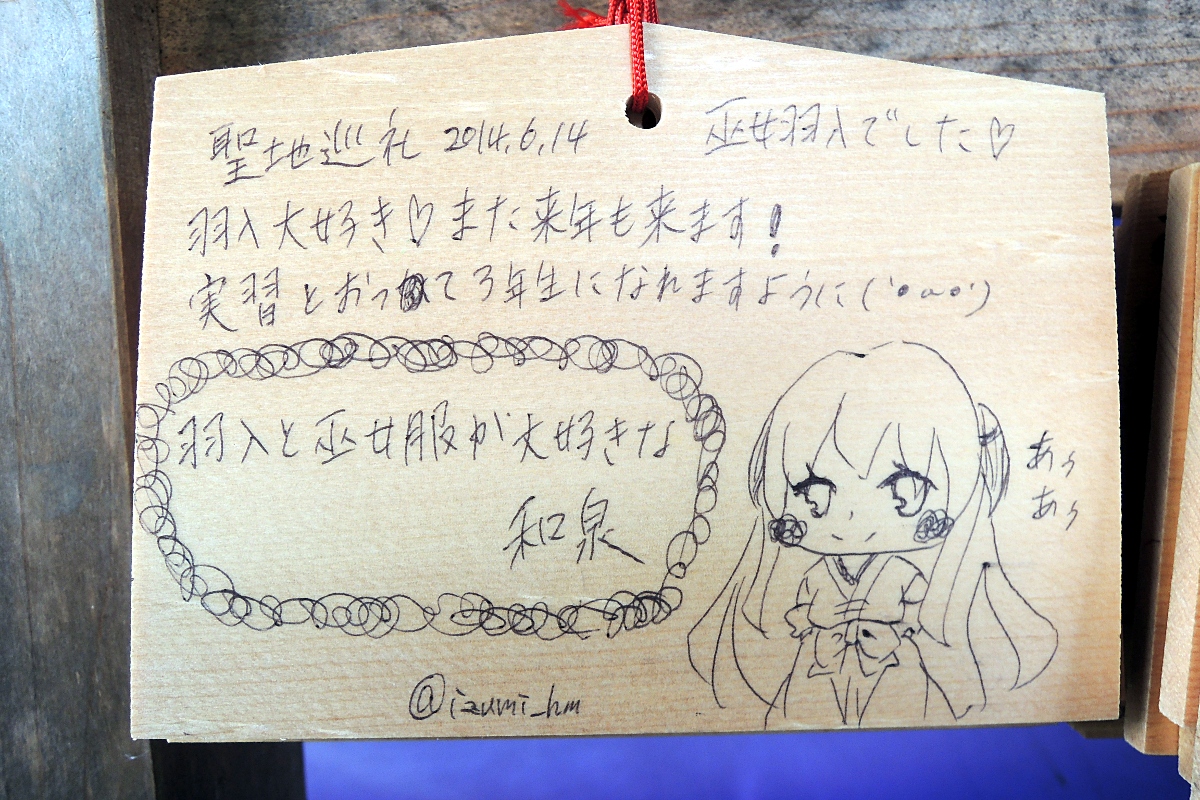 聖地巡礼 2014.6.14 巫女羽入でした♡
羽入大好き♡また来年も来ます!
実習とおって3年生になれますように(´•ω•`)
羽入と巫女服が大好きな
和泉
あぅ
あぅ
@izumi_hm